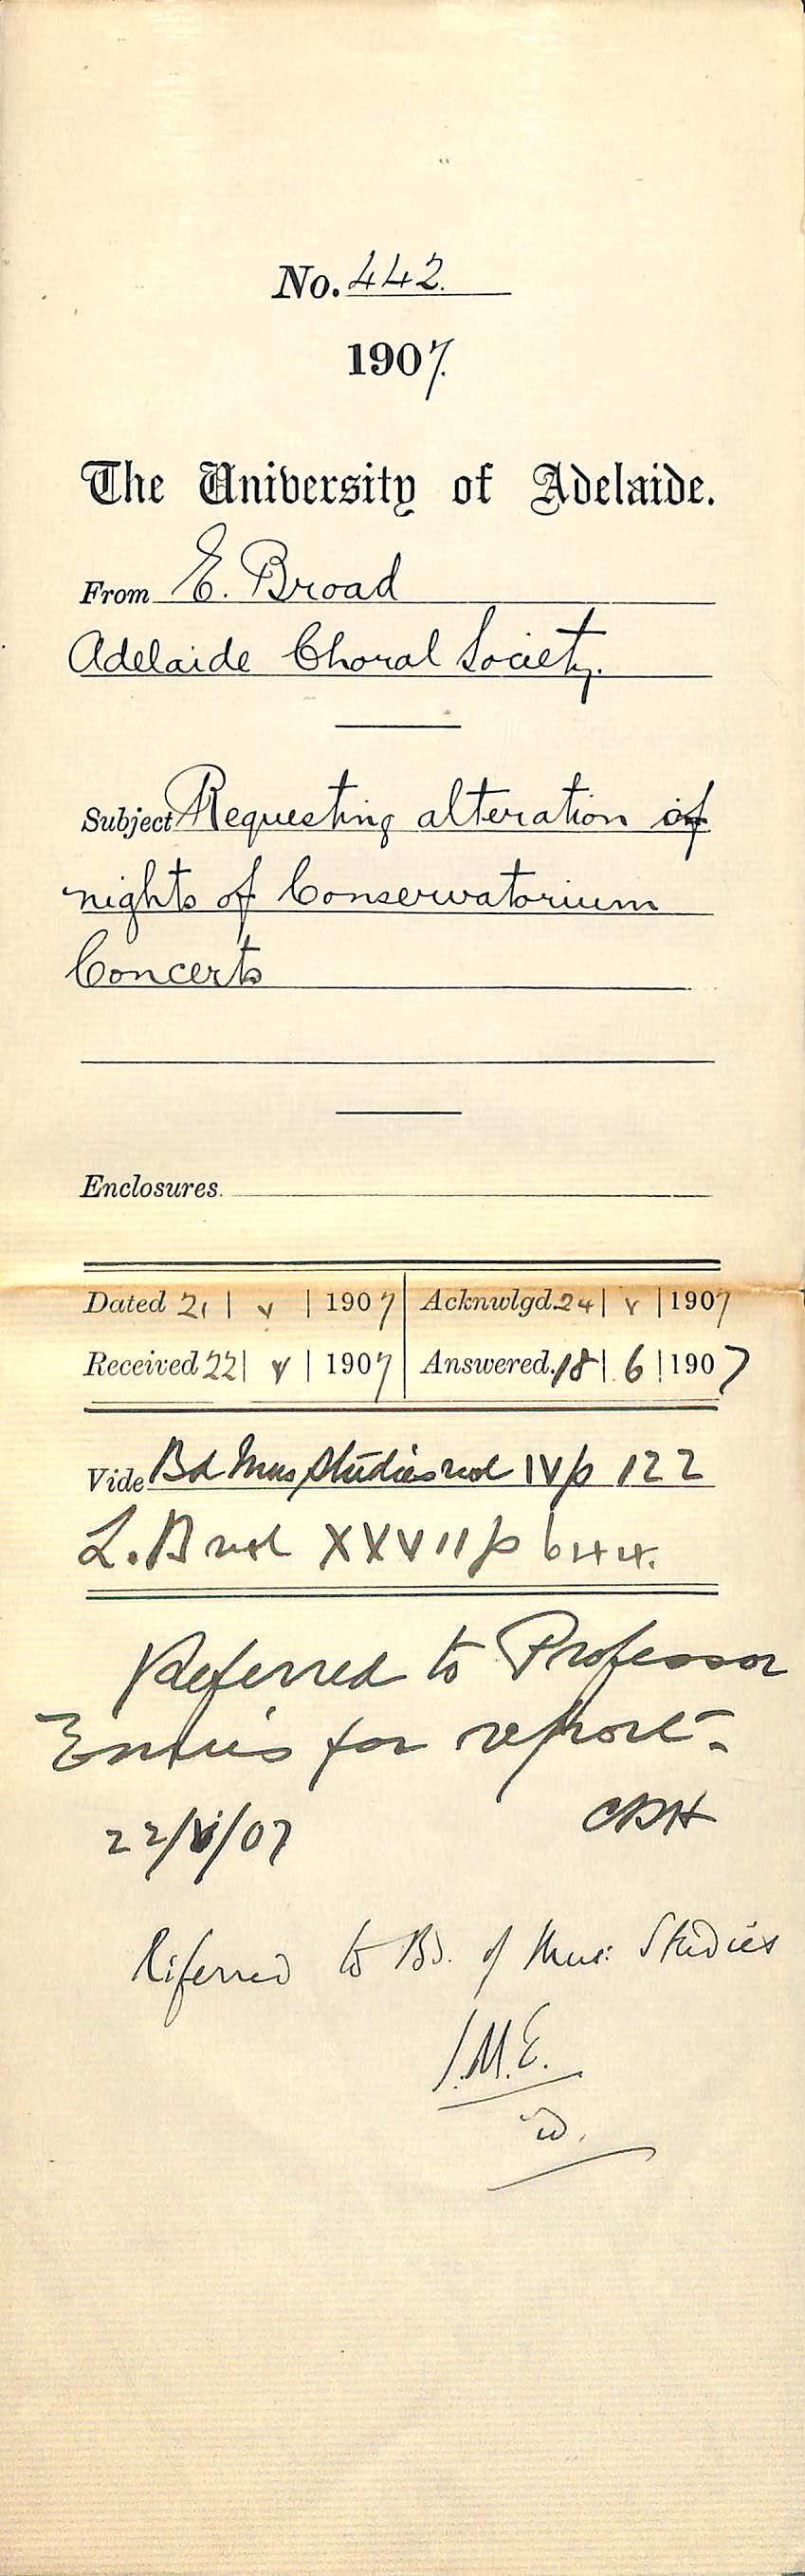 No. 442.
1907.
The University of Adelaide.
From E. Broad
Adelaide Choral Society.
Subject Requesting alteration of
nights of Conservatorium
Concerts
Enclosures.
Dated 21 | v | 1907 | Acknwlgd. 24 | v | 1907
Received 22 | v | 1907 | Answered. 18 | 6 | 1907
Vide Bd Mus Studies vol IV p 122
L.B vol XXVII p 644.
Referred to Professor
Ennis for report-
22/V/07 CRH
Referred to Bd. of Mus: Studies
J.M.E.